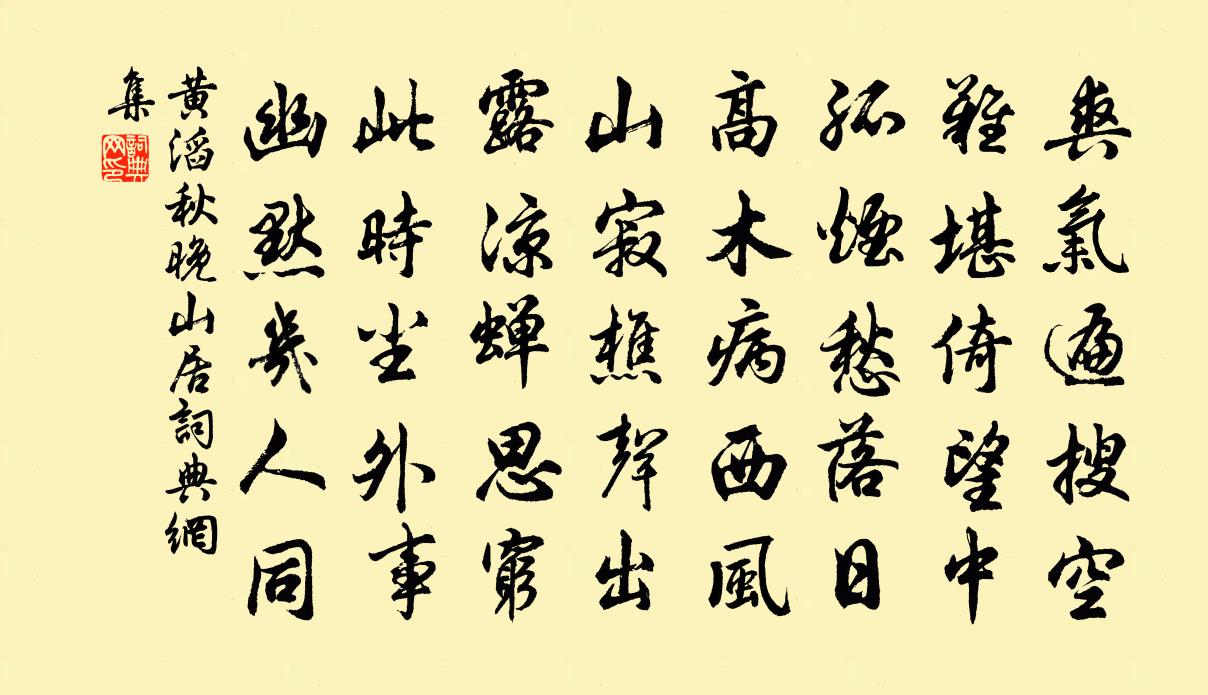 爽氣遍搜空
難堪倚望中
孤煙愁落日
高木病西風
山寂樵聲出
露涼蟬思窮
此時塵外事
幽默幾人同
黃滔秋晚山居詞典網
集
詞典網印